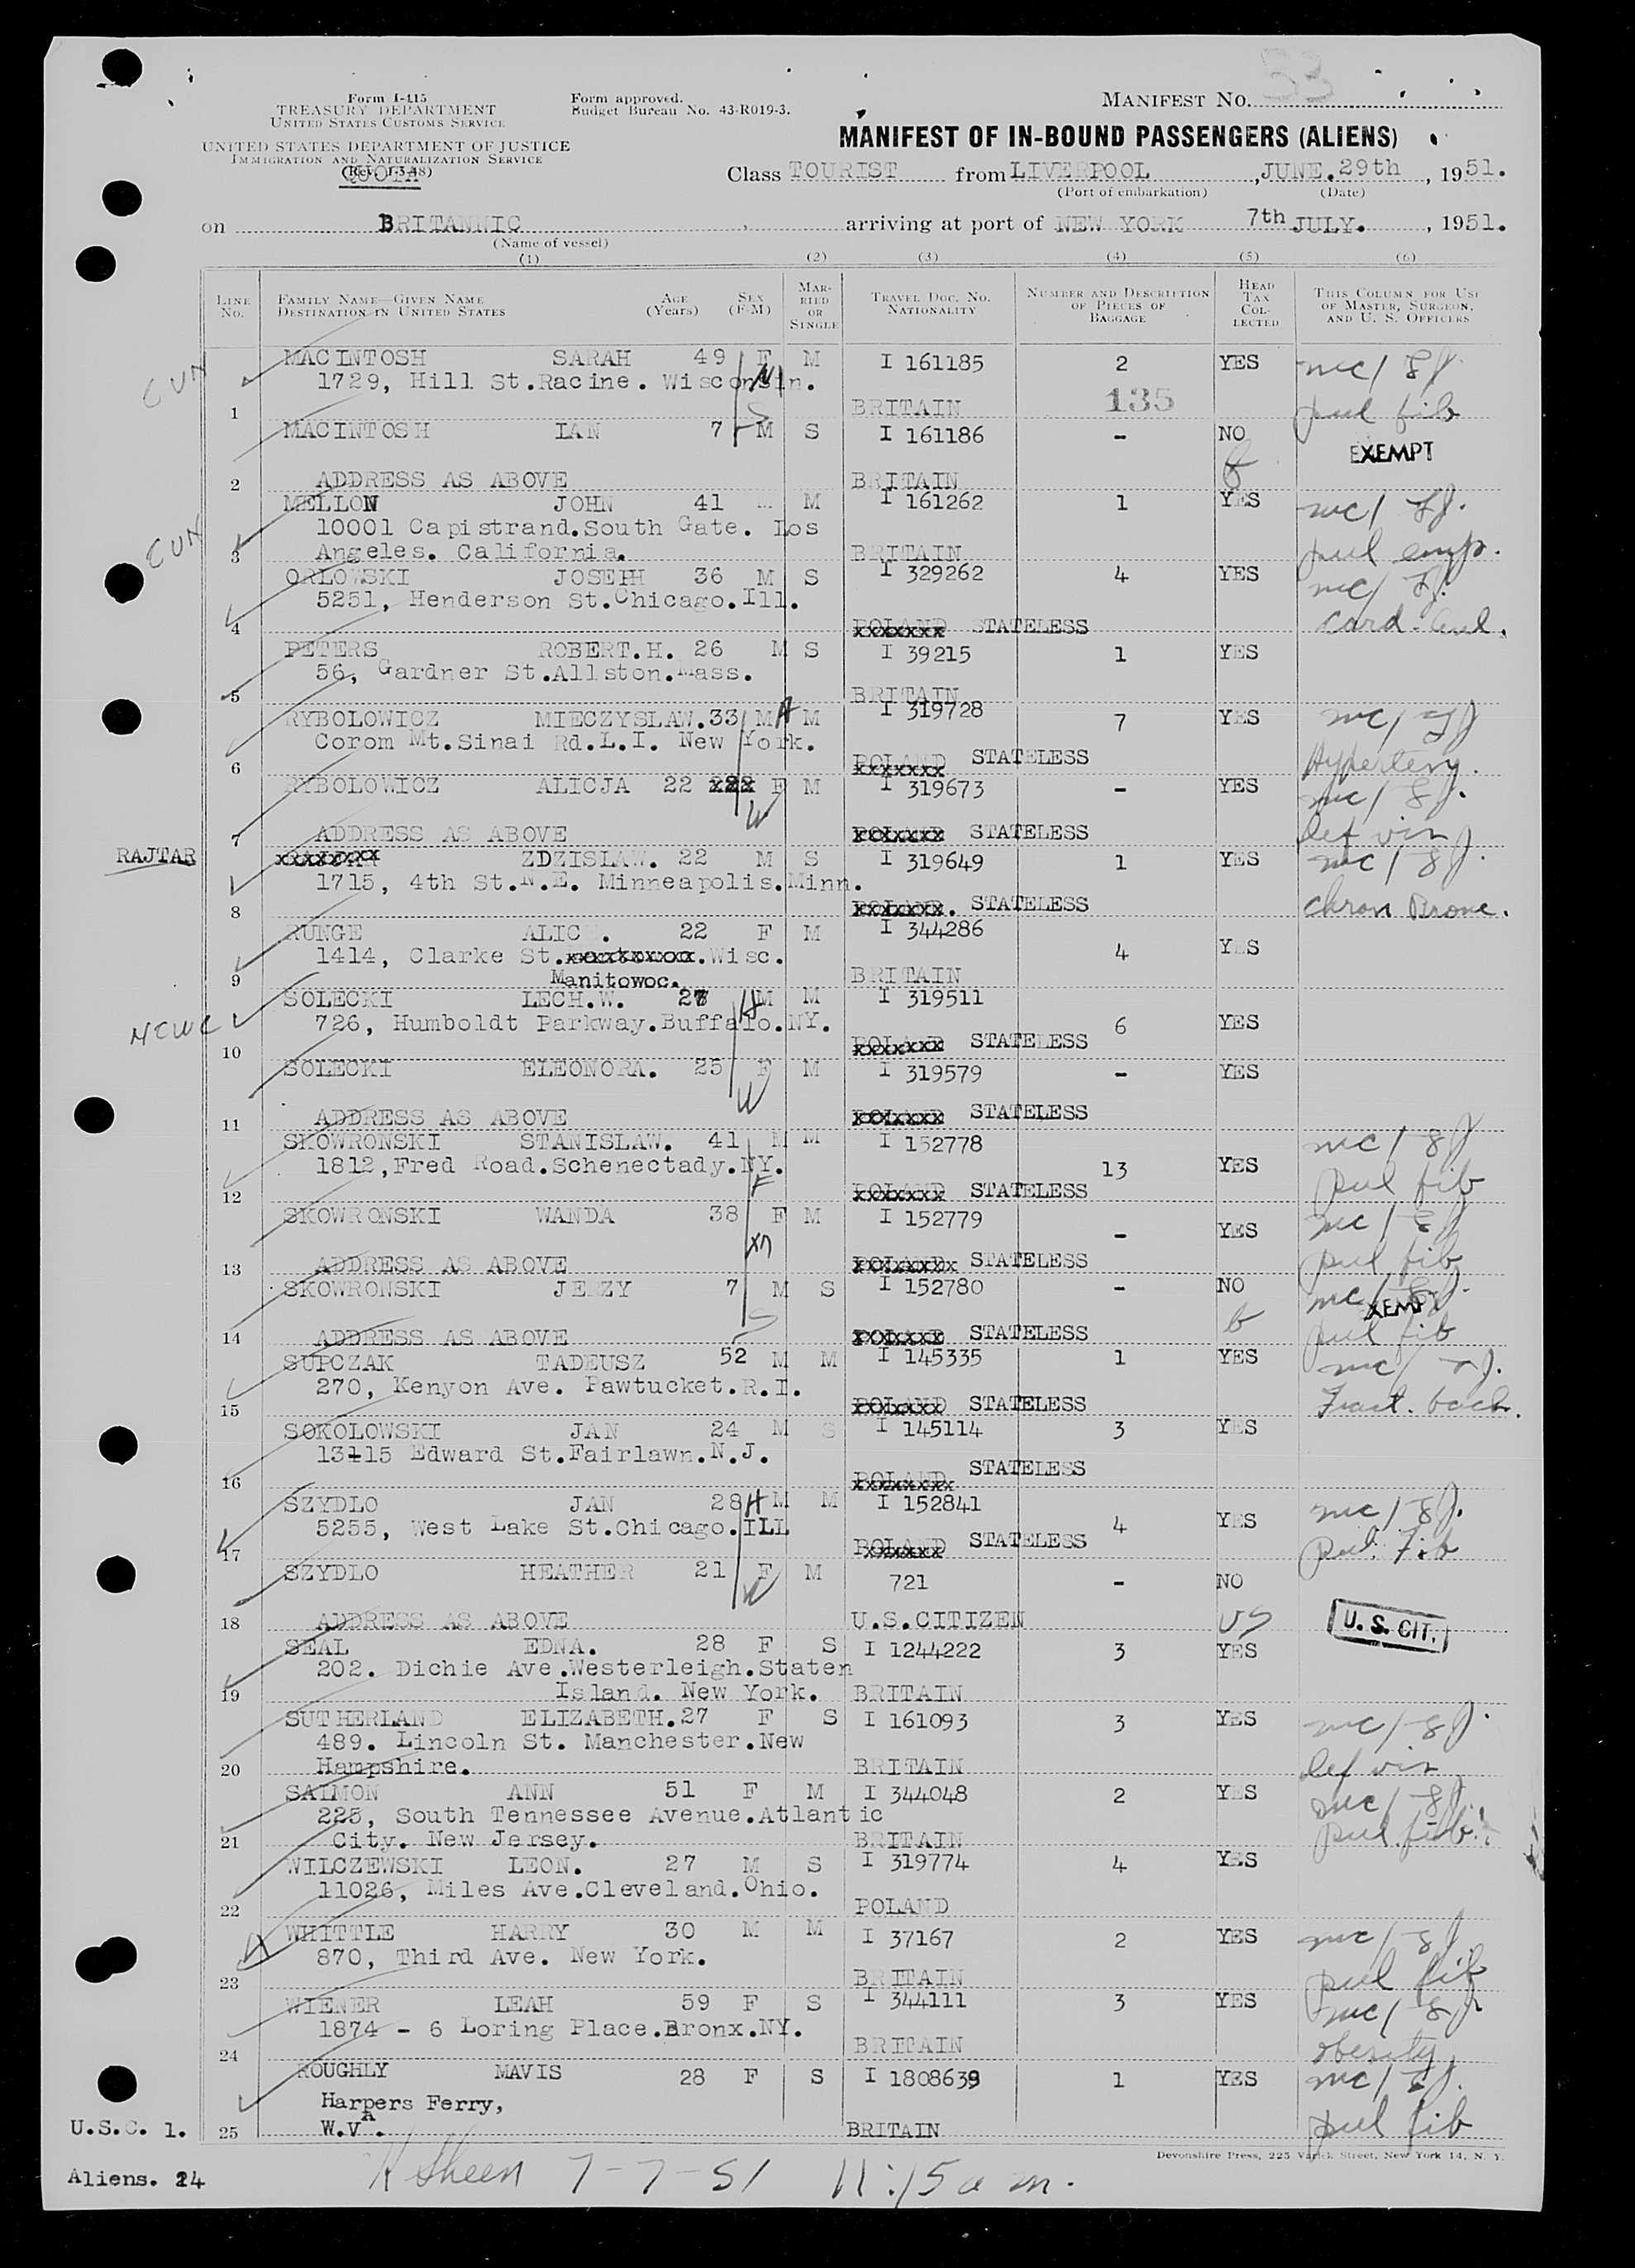 33
Form I-415
TREASURY DEPARTMENT
UNITED STATES CUSTOMS SERVICE
Form approved.
Budget Bureau No. 43-R019-3.
MANIFEST NO.
UNITED STATES DEPARTMENT OF JUSTICE
IMMIGRATION AND NATURALIZATION SERVICE
QUOTA
MANIFEST OF IN-BOUND PASSENGERS (ALIENS)
Class TOURIST from LIVERPOOL, JUNE.29th, 1951.
(Port of embarkation) (Date)
on BRITANNIC arriving at port of NEW YORK 7th JULY., 1951.
(Name of vessel)
(1) (2) (3) (4) (5) (6)
LINE NO. FAMILY NAME—GIVEN NAME DESTINATION IN UNITED STATES AGE (Years) SEX (F-M) MARRIED OR SINGLE TRAVEL DOC. NO. NATIONALITY NUMBER AND DESCRIPTION OF PIECES OF BAGGAGE HEAD TAX COLLECTED THIS COLUMN FOR USE OF MASTER, SURGEON, AND U. S. OFFICERS
CUN MACINTOSH SARAH 49 F M I 161185 2 YES
1729, Hill St.Racine. Wisconsin.
1 BRITAIN 135 pul fib
MACINTOSH IAN 7 M S I 161186 - NO EXEMPT
2 ADDRESS AS ABOVE BRITAIN
CUN MELLON JOHN 41 M I 161262 1 YES
10001 Capistrand.South Gate. Los
3 Angeles. California. BRITAIN pul emp.
ORLOWSKI JOSEPH 36 M S I 329262 4 YES
5251, Henderson St.Chicago.Ill.
4 POLAND STATELESS
PETERS ROBERT.H. 26 M S I 39215 1 YES
56, Gardner St.Allston.Mass.
5 BRITAIN
RYBOLOWICZ MIECZYSLAW.33 M M I 319728 7 YES
Corom Mt.Sinai Rd.L.I. New York.
6 POLAND STATELESS Hypertens.
RYBOLOWICZ ALICJA 22 F M I 319673 - YES
7 ADDRESS AS ABOVE POLAND STATELESS def vis
RAJTAR ZDZISLAW. 22 M S I 319649 1 YES
1715, 4th St.N.E. Minneapolis.Minn.
8 POLAND. STATELESS chron Bronc.
RUNGE ALIC . 22 F M I 344286 4 YES
1414, Clarke St. .Wisc.
9 Manitowoc. BRITAIN
NEWC SOLECKI LECH.W. 27 M M I 319511 6 YES
726, Humboldt Parkway.Buffalo.NY.
10 POLAND STATELESS
SOLECKI ELEONORA. 25 F M I 319579 - YES
11 ADDRESS AS ABOVE POLAND STATELESS
SKOWRONSKI STANISLAW. 41 M M I 152778 13 YES
1812,Fred Road.Schenectady.NY.
12 POLAND STATELESS pul fib
SKOWRONSKI WANDA 38 F M I 152779 - YES
13 ADDRESS AS ABOVE POLAND STATELESS pul fib
SKOWRONSKI JERZY 7 M S I 152780 - NO
14 ADDRESS AS ABOVE POLAND STATELESS pul fib
SUPCZAK TADEUSZ 52 M M I 145335 1 YES
270, Kenyon Ave. Pawtucket.R.I.
15 POLAND STATELESS Fract. back.
SOKOLOWSKI JAN 24 M S I 145114 3 YES
13115 Edward St.Fairlawn.N.J.
16 POLAND STATELESS
SZYDLO JAN 28 M M I 152841 4 YES
5255, West Lake St.Chicago.ILL
17 POLAND STATELESS pul. Fib
SZYDLO HEATHER 21 F M 721 - NO
18 ADDRESS AS ABOVE U.S.CITIZEN US U. S. CIT.
SEAL EDNA. 28 F S I 1244222 3 YES
202. Dichie Ave.Westerleigh.Staten
19 Island. New York. BRITAIN
SUTHERLAND ELIZABETH.27 F S I 161093 3 YES
489. Lincoln St. Manchester.New
20 Hampshire. BRITAIN def vis
SALMON ANN 51 F M I 344048 2 YES
225, South Tennessee Avenue.Atlantic
21 City. New Jersey. BRITAIN pul.fib.
WILCZEWSKI LEON. 27 M S I 319774 4 YES
11026, Miles Ave.Cleveland.Ohio.
22 POLAND
WHITTLE HARRY 30 M M I 37167 2 YES
870, Third Ave. New York.
23 BRITAIN pul fib
WIENER LEAH 59 F S I 344111 3 YES
1874 - 6 Loring Place.Bronx.NY.
24 BRITAIN obesity
ROUGHLY MAVIS 28 F S I 1808639 1 YES
Harpers Ferry,
25 W.VA. BRITAIN pul fib
U.S.C. 1.
Devonshire Press, 225 Varick Street, New York 14, N. Y.
Aliens. 24
Sheen 7-7-51 11:15 a m.